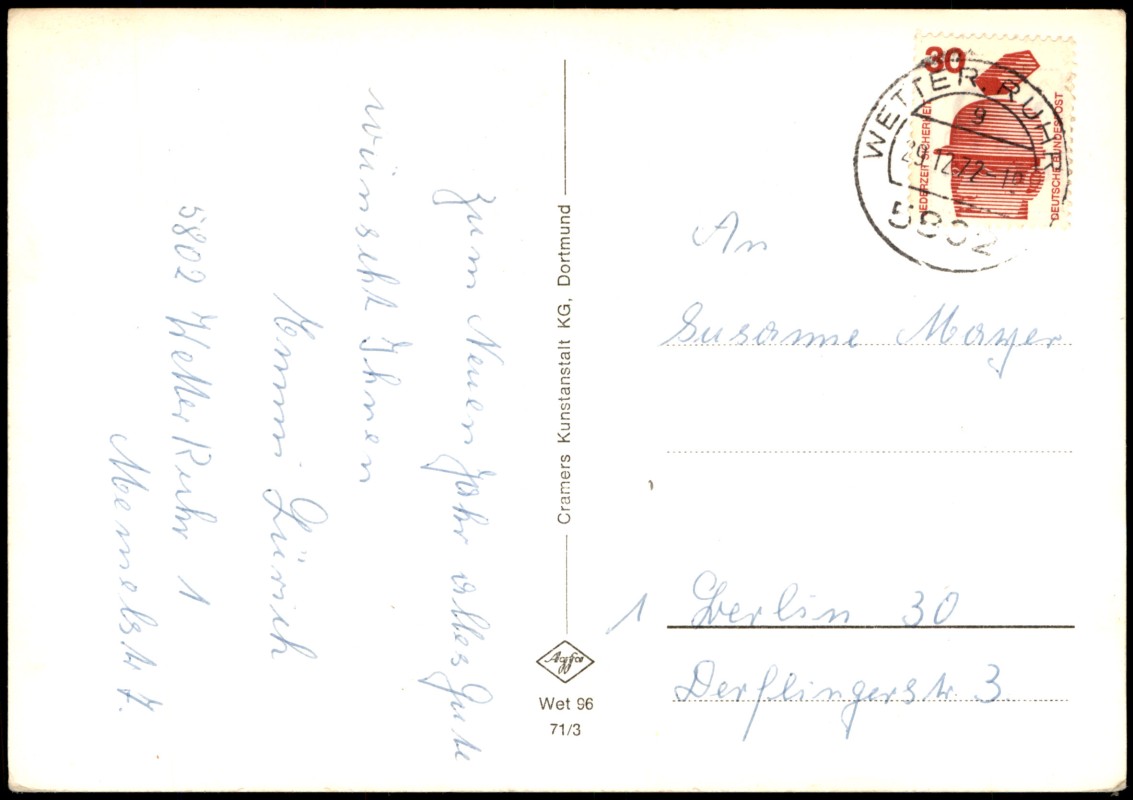 Zum Neuen Jahr alles Gute
wünscht Ihnen
5802 Wetter Ruhr 1
Cramers Kunstanstalt KG, Dortmund
Wet 96
71/3
30
JEDERZEIT SICHERHEIT
DEUTSCHE BUNDESPOST
WETTER, RUHR
g
29.12.72
5802
An
Susanne Mayer
1 Berlin 30
Derflingerstr. 3